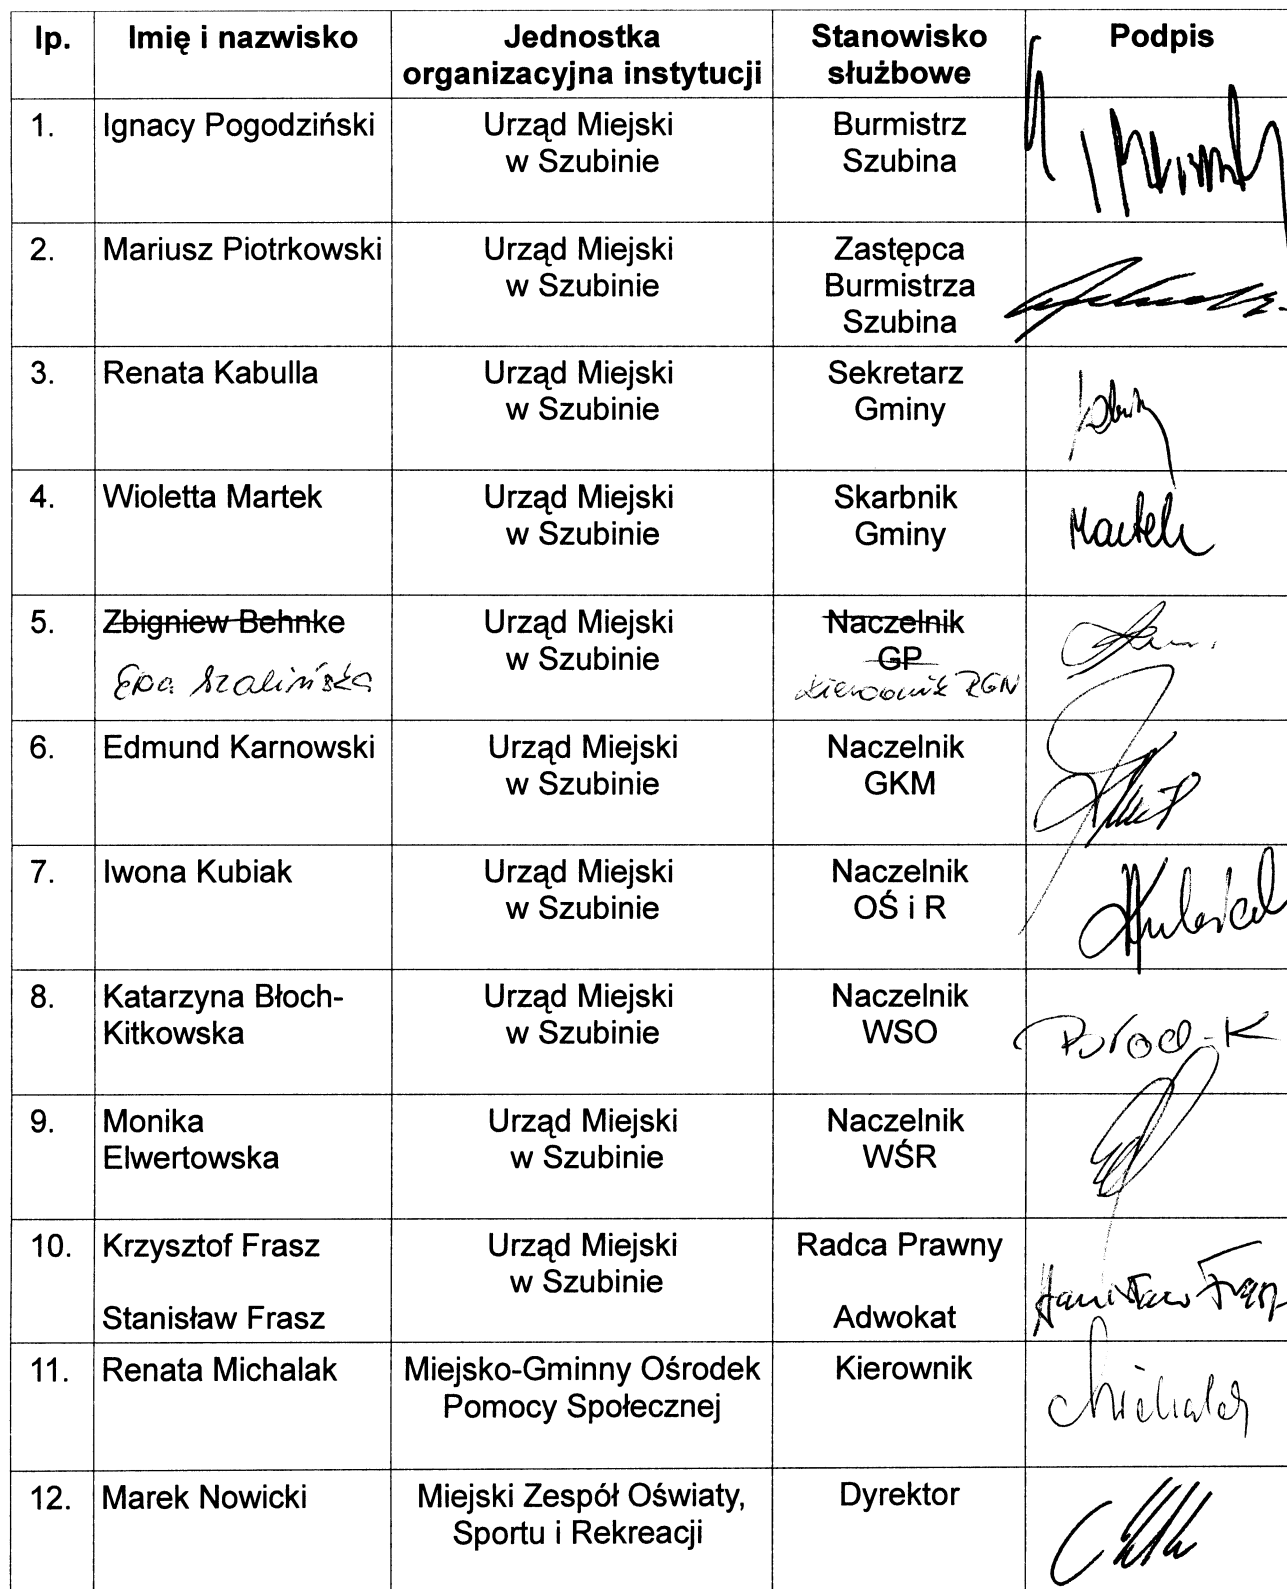 lp. Imię i nazwisko Jednostka organizacyjna instytucji Stanowisko służbowe Podpis
1. Ignacy Pogodziński Urząd Miejski w Szubinie Burmistrz Szubina
2. Mariusz Piotrkowski Urząd Miejski w Szubinie Zastępca Burmistrza Szubina
3. Renata Kabulla Urząd Miejski w Szubinie Sekretarz Gminy
4. Wioletta Martek Urząd Miejski w Szubinie Skarbnik Gminy Martek
5. Zbigniew Behnke Urząd Miejski w Szubinie Naczelnik GP
Ewa Szalińska Kierownik RGN
6. Edmund Karnowski Urząd Miejski w Szubinie Naczelnik GKM
7. Iwona Kubiak Urząd Miejski w Szubinie Naczelnik OŚ i R
8. Katarzyna Błoch-Kitkowska Urząd Miejski w Szubinie Naczelnik WSO
9. Monika Elwertowska Urząd Miejski w Szubinie Naczelnik WŚR
10. Krzysztof Frasz Urząd Miejski w Szubinie Radca Prawny
Stanisław Frasz Adwokat Stanisław Frasz
11. Renata Michalak Miejsko-Gminny Ośrodek Pomocy Społecznej Kierownik Michalak
12. Marek Nowicki Miejski Zespół Oświaty, Sportu i Rekreacji Dyrektor